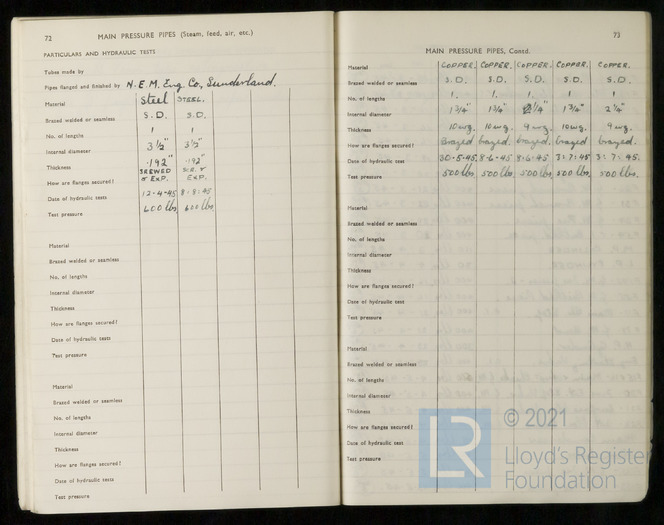 72 MAIN PRESSURE PIPES (Steam, feed, air, etc.)
PARTICULARS AND HYDRAULIC TESTS
Tubes made by
Pipes flanged and finished by N.E.M. Eng. Co, Sunderland.
Material Steel STEEL.
Brazed welded or seamless S.D. S.D.
No. of lengths 1 1
Internal diameter 3½" 3½"
Thickness .192" .192"
How are flanges secured? SCREWED & EXP. SCR. & EXP.
Date of hydraulic tests 12-4-45 8-8-45
Test pressure 600 lbs 600 lbs
Material
Brazed welded or seamless
No. of lengths
Internal diameter
Thickness
How are flanges secured?
Date of hydraulic tests
Test pressure
Material
Brazed welded or seamless
No. of lengths
Internal diameter
Thickness
How are flanges secured?
Date of hydraulic tests
Test pressure
73
MAIN PRESSURE PIPES, Contd.
Material COPPER. COPPER. COPPER. COPPER. COPPER.
Brazed welded or seamless S.D. S.D. S.D. S.D. S.D.
No. of lengths 1. 1. 1. 1 1
Internal diameter 1¾" 1¾" 2¼" 1¾" 2¼"
Thickness 10wg. 10wg. 9wg. 10wg. 9wg.
How are flanges secured? Brazed. brazed. brazed. brazed brazed.
Date of hydraulic tests 30-5-45 8-6-45 8-6-45 31-7-45 31-7-45.
Test pressure 500 lbs 500 lbs 500 lbs 500 lbs 500 lbs.
Material
Brazed welded or seamless
No. of lengths
Internal diameter
Thickness
How are flanges secured?
Date of hydraulic tests
Test pressure
Material
Brazed welded or seamless
No. of lengths
Internal diameter
Thickness
How are flanges secured?
Date of hydraulic tests
Test pressure
LR © 2021
Lloyd's Register
Foundation